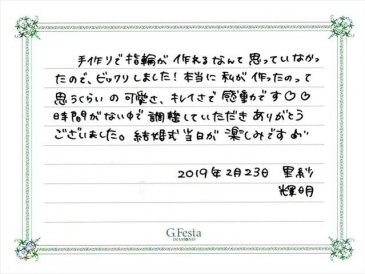 手作りで指輪が作れるなんて思っていなかっ
たので、ビックリしました!本当に私が作ったのって
思うくらいの可愛さ、キレイさで感動です♡♡
時間がない中で調整していただきありがとう
ございました。結婚式当日が楽しみです
2019年2月23日 里彩
輝明
G.Festa
DIAMOND